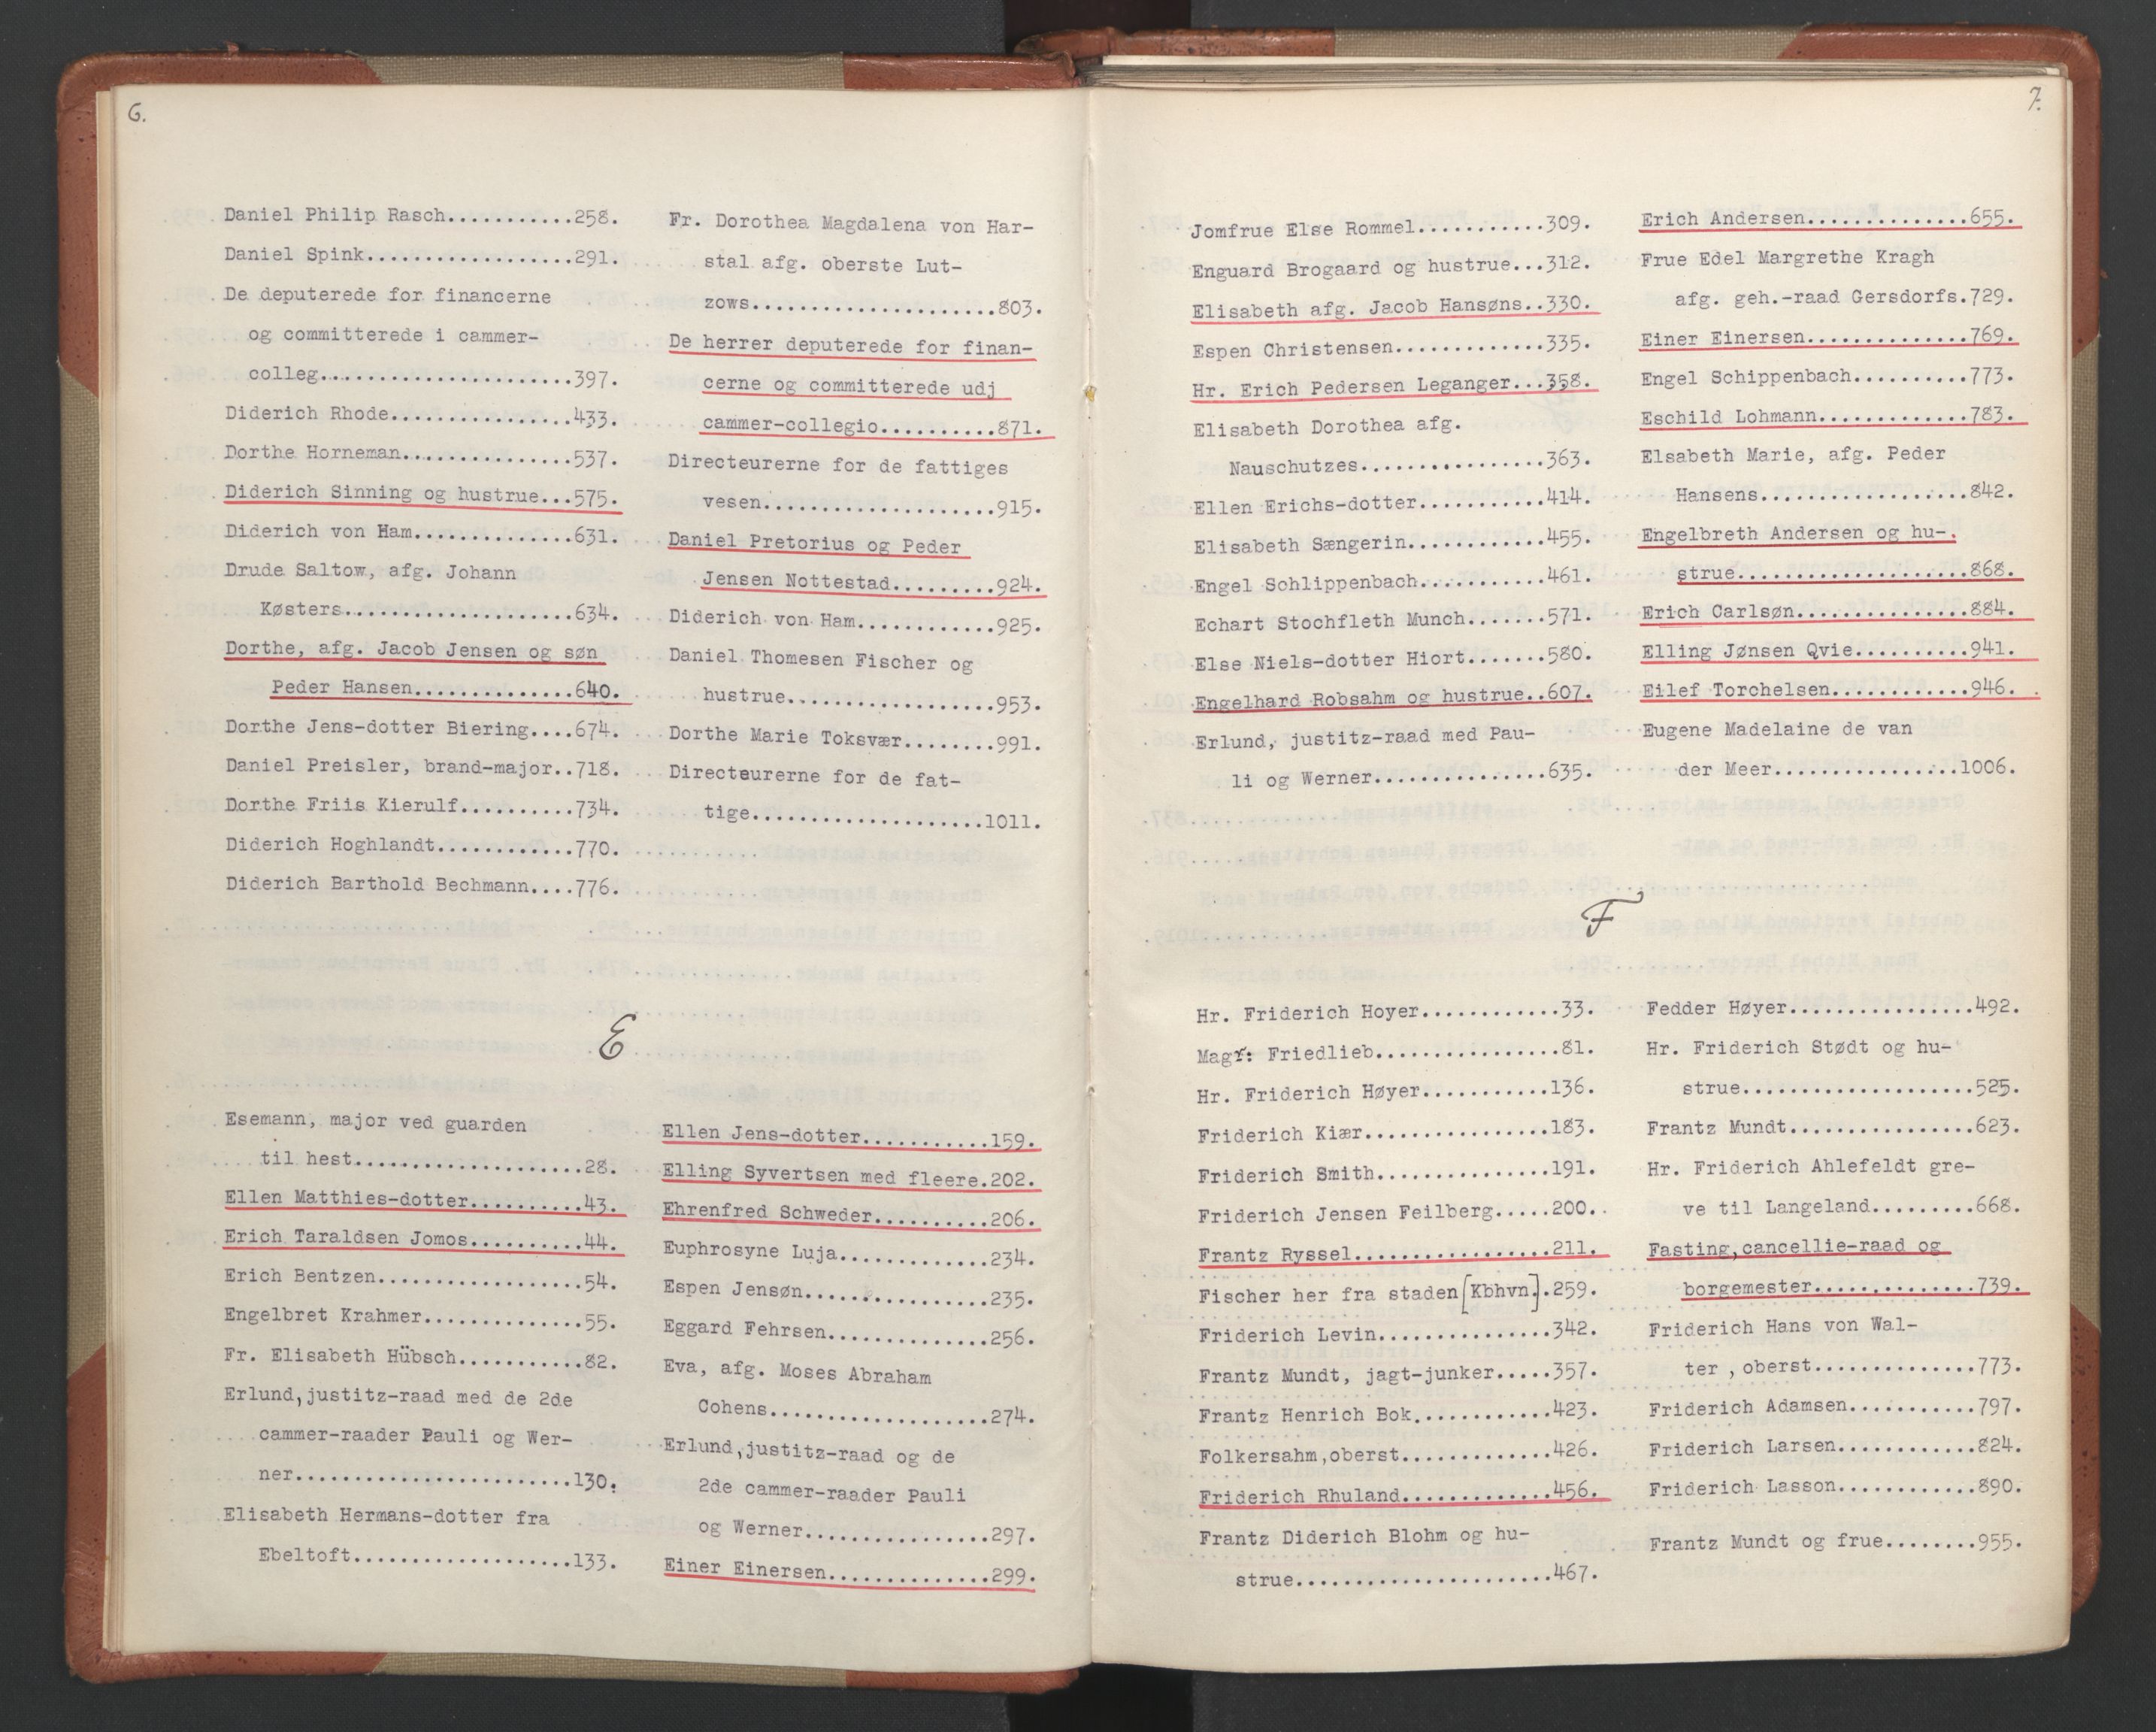 6.
Daniel Philip Rasch...........258.
Daniel Spink..................291.
De deputerede for financerne
og committerede i cammer-
colleg......................397.
Diderich Rhode................433.
Dorthe Horneman...............537.
Diderich Sinning og hustrue...575.
Diderich von Ham..............631.
Drude Saltow, afg. Johann
Køsters....................634.
Dorthe, afg. Jacob Jensen og søn
Peder Hansen..............640.
Dorthe Jens-dotter Biering....674.
Daniel Preisler, brand-major..718.
Dorthe Friis Kierulf..........734.
Diderich Hoghlandt............770.
Diderich Barthold Bechmann....776.
Fr. Dorothea Magdalena von Har-
stal afg. oberste Lut-
zows.....................803.
De herrer deputerede for finan-
cerne og committerede udj
cammer-collegio..........871.
Directeurerne for de fattiges
vesen....................915.
Daniel Pretorius og Peder
Jensen Nottestad.........924.
Diderich von Ham............925.
Daniel Thomesen Fischer og
hustrue..................953.
Dorthe Marie Toksvær........991.
Directeurerne for de fat-
tige....................1011.
E
Esemann, major ved guarden
til hest....................28.
Ellen Matthies-dotter..........43.
Erich Taraldsen Jomos..........44.
Erich Bentzen..................54.
Engelbret Krahmer..............55.
Fr. Elisabeth Hübsch...........82.
Erlund,justitz-raad med de 2de
cammer-raader Pauli og Wer-
ner........................130.
Elisabeth Hermans-dotter fra
Ebeltoft...................133.
Ellen Jens-dotter...........159.
Elling Syvertsen med fleere.202.
Ehrenfred Schweder..........206.
Euphrosyne Luja.............234.
Espen Jensøn................235.
Eggard Fehrsen..............256.
Eva, afg. Moses Abraham
Cohens...................274.
Erlund,justitz-raad og de
2de cammer-raader Pauli
og Werner................297.
Einer Einersen..............299.
7.
Jomfrue Else Rommel...........309.
Enguard Brogaard og hustrue...312.
Elisabeth afg. Jacob Hansøns..330.
Espen Christensen.............335.
Hr. Erich Pedersen Leganger...358.
Elisabeth Dorothea afg.
Nauschutzes................363.
Ellen Erichs-dotter...........414.
Elisabeth Sængerin............455.
Engel Schlippenbach...........461.
Echart Stochfleth Munch.......571.
Else Niels-dotter Hiort.......580.
Engelhard Robsahm og hustrue..607.
Erlund, justitz-raad med Pau-
li og Werner...............635.
Erich Andersen..............655.
Frue Edel Margrethe Kragh
afg. geh.-raad Gersdorfs.729.
Einer Einersen..............769.
Engel Schippenbach..........773.
Eschild Lohmann.............783.
Elsabeth Marie, afg. Peder
Hansens..................842.
Engelbreth Andersen og hu-
strue....................868.
Erich Carlsøn...............884.
Elling Jønsen Qvie..........941.
Eilef Torchelsen............946.
Eugene Madelaine de van
der Meer................1006.
F
Hr. Friderich Hoyer............33.
Magr: Friedlieb................81.
Hr. Friderich Høyer...........136.
Friderich Kiær................183.
Friderich Smith...............191.
Friderich Jensen Feilberg.....200.
Frantz Ryssel.................211.
Fischer her fra staden[Kbhvn.].259.
Friderich Levin...............342.
Frantz Mundt, jagt-junker.....357.
Frantz Henrich Bok............423.
Folkersahm,oberst.............426.
Friderich Rhuland.............456.
Frantz Diderich Blohm og hu-
strue......................467.
Fedder Høyer................492.
Hr. Friderich Stødt og hu-
strue....................525.
Frantz Mundt................623.
Hr. Friderich Ahlefeldt gre-
ve til Langeland.........668.
Fasting,cancellie-raad og
borgemester..............739.
Friderich Hans von Wal-
ter , oberst..............773.
Friderich Adamsen...........797.
Friderich Larsen............824.
Friderich Lasson............890.
Frantz Mundt og frue........955.